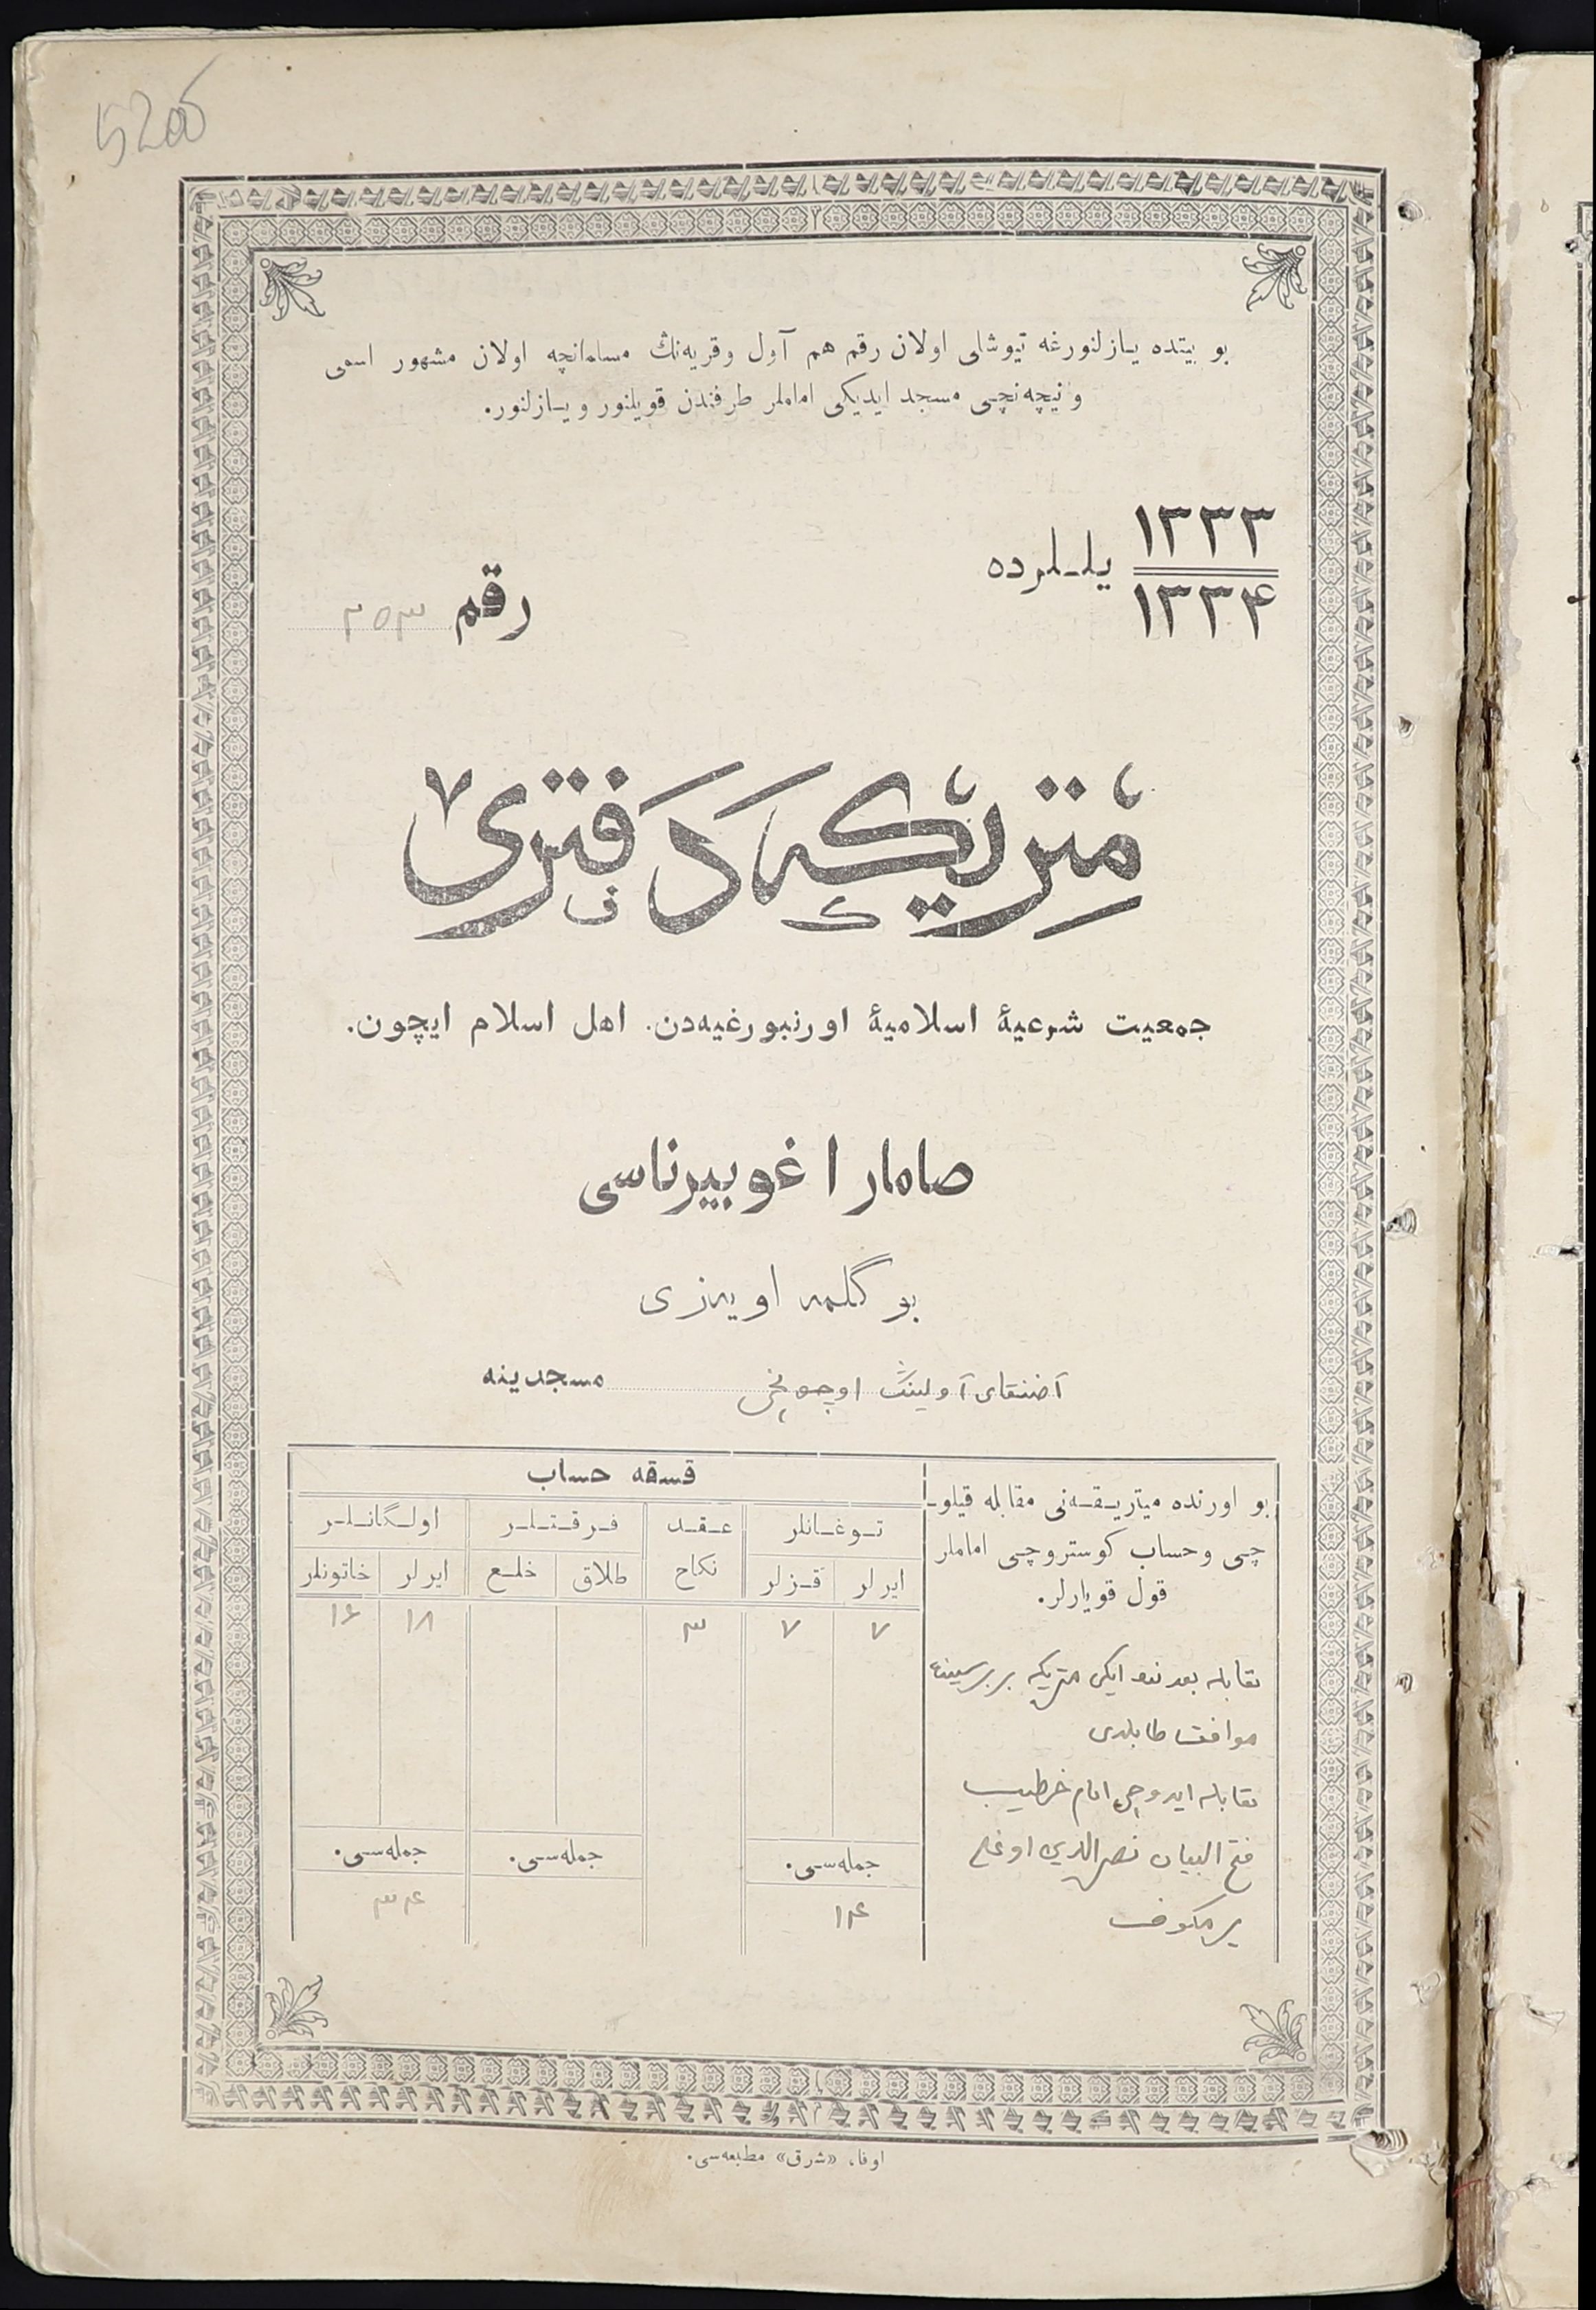 5205
بو بیتده یازلنورغه تیوشلی اولان رقم هم آول وقریه‌نڭ مسلمانچه اولان مشهور اسمی
و نیچه‌نچی مسجد ایدیکی امام‌لر طرفندن قویلنور و یازلنور.
۱۳۳۳
۱۳۳۴
یللرده
رقم ۲۵۳
متریکه دفتری
جمعیت شرعیهٔ اسلامیهٔ اورنبورغیه‌دن. اهل اسلام ایچون.
صامارا غوبیرناسی
بوگلمه اویه‌زی
آولینڭ اوچونچی مسجدینه
بو اورنده میتریقه‌نی مقابله قیلو-
چی وحساب کوستروچی اماملر
قول قویارلر.
قسقه حساب
توغانلر عقد فرقتلر اولگانلر
ایرلر قزلر نکاح طلاق خلع ایرلر خاتونلر
۷ ۷ ۳ ۱۸ ۱۶
مقابله بعدنده ایکی متریکه بربرسینه
موافق طابلدی
مقابله ایدوچی امام خطیب
فتح البیان نصرالدین اوغلی
جمله‌سی. جمله‌سی. جمله‌سی.
۱۴ ۳۴
اوفا، «شرق» مطبعه‌سی.